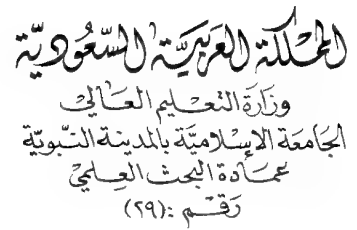 المملكة العربيّة السّعُوديّة
وزارة التعليم العالي
الجامعة الإسلاميّة بالمدينة النبويّة
عمادة البحث العلمي
رقم : (٢٩)